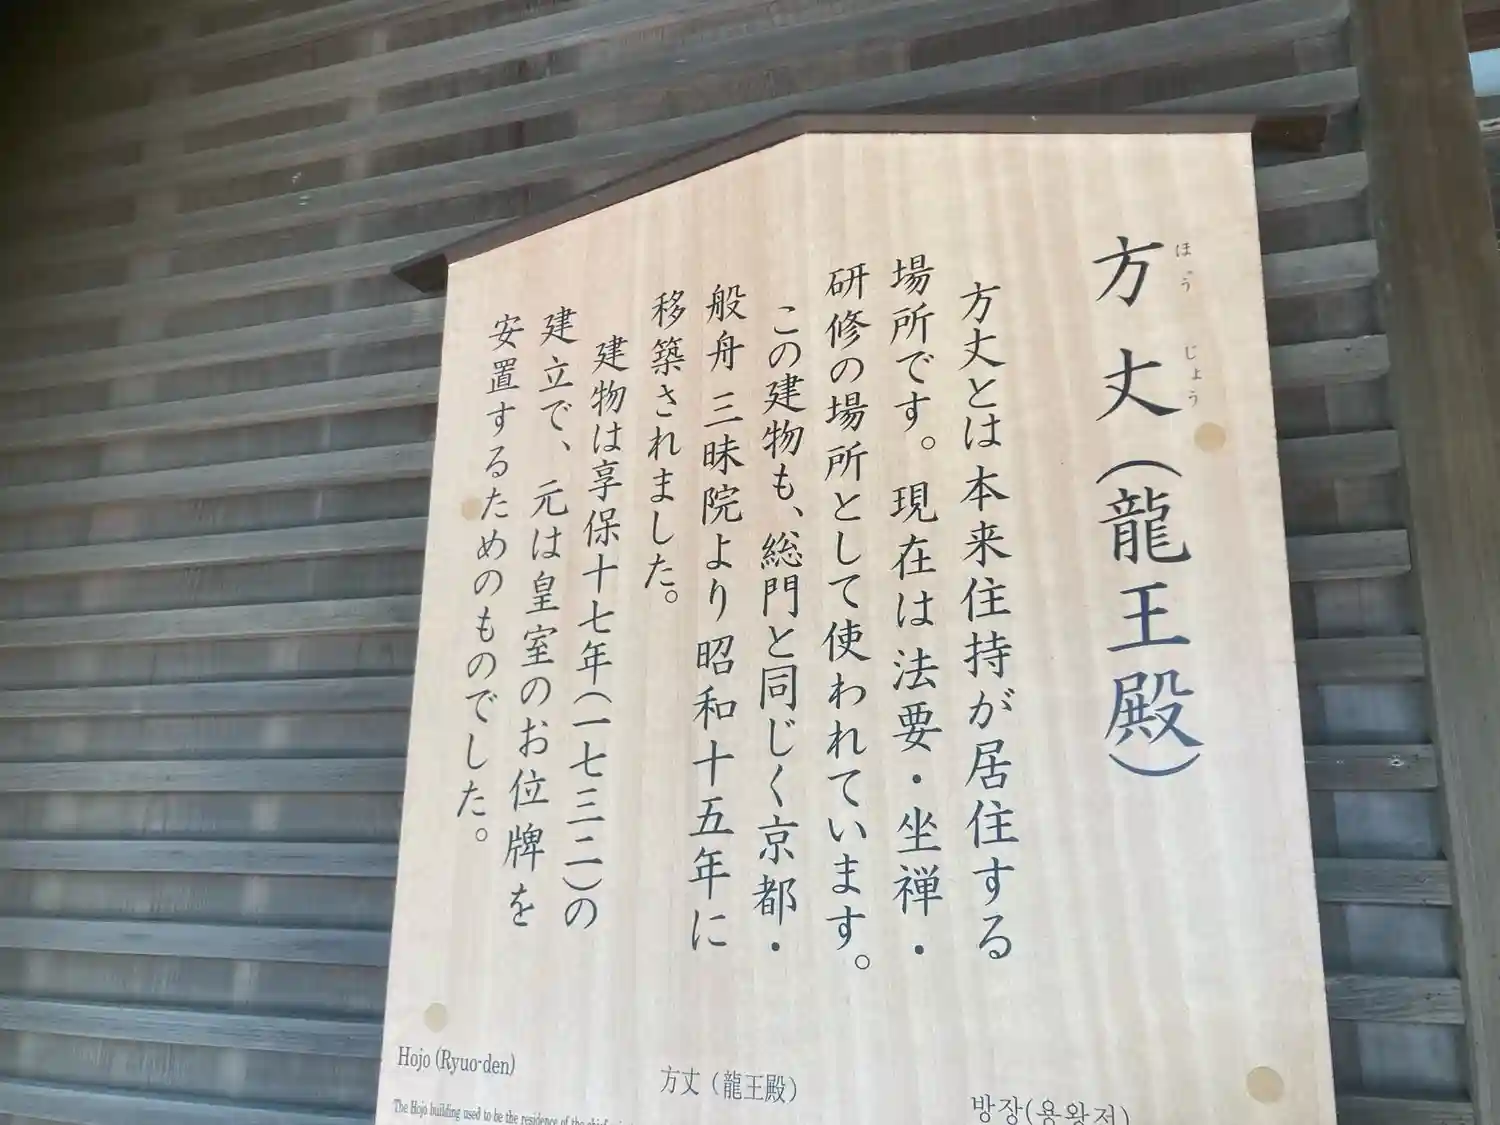 方丈(龍王殿)
ほうじょう
方丈とは本来住持が居住する
場所です。現在は法要・坐禅・
研修の場所として使われています。
この建物も、総門と同じく京都・
般舟三昧院より昭和十五年に
移築されました。
建物は享保十七年(一七三二)の
建立で、元は皇室のお位牌を
安置するためのものでした。
Hojo (Ryuo-den)
The Hojo building used to be the residence of the
方丈（龍王殿）
방장(용왕전)